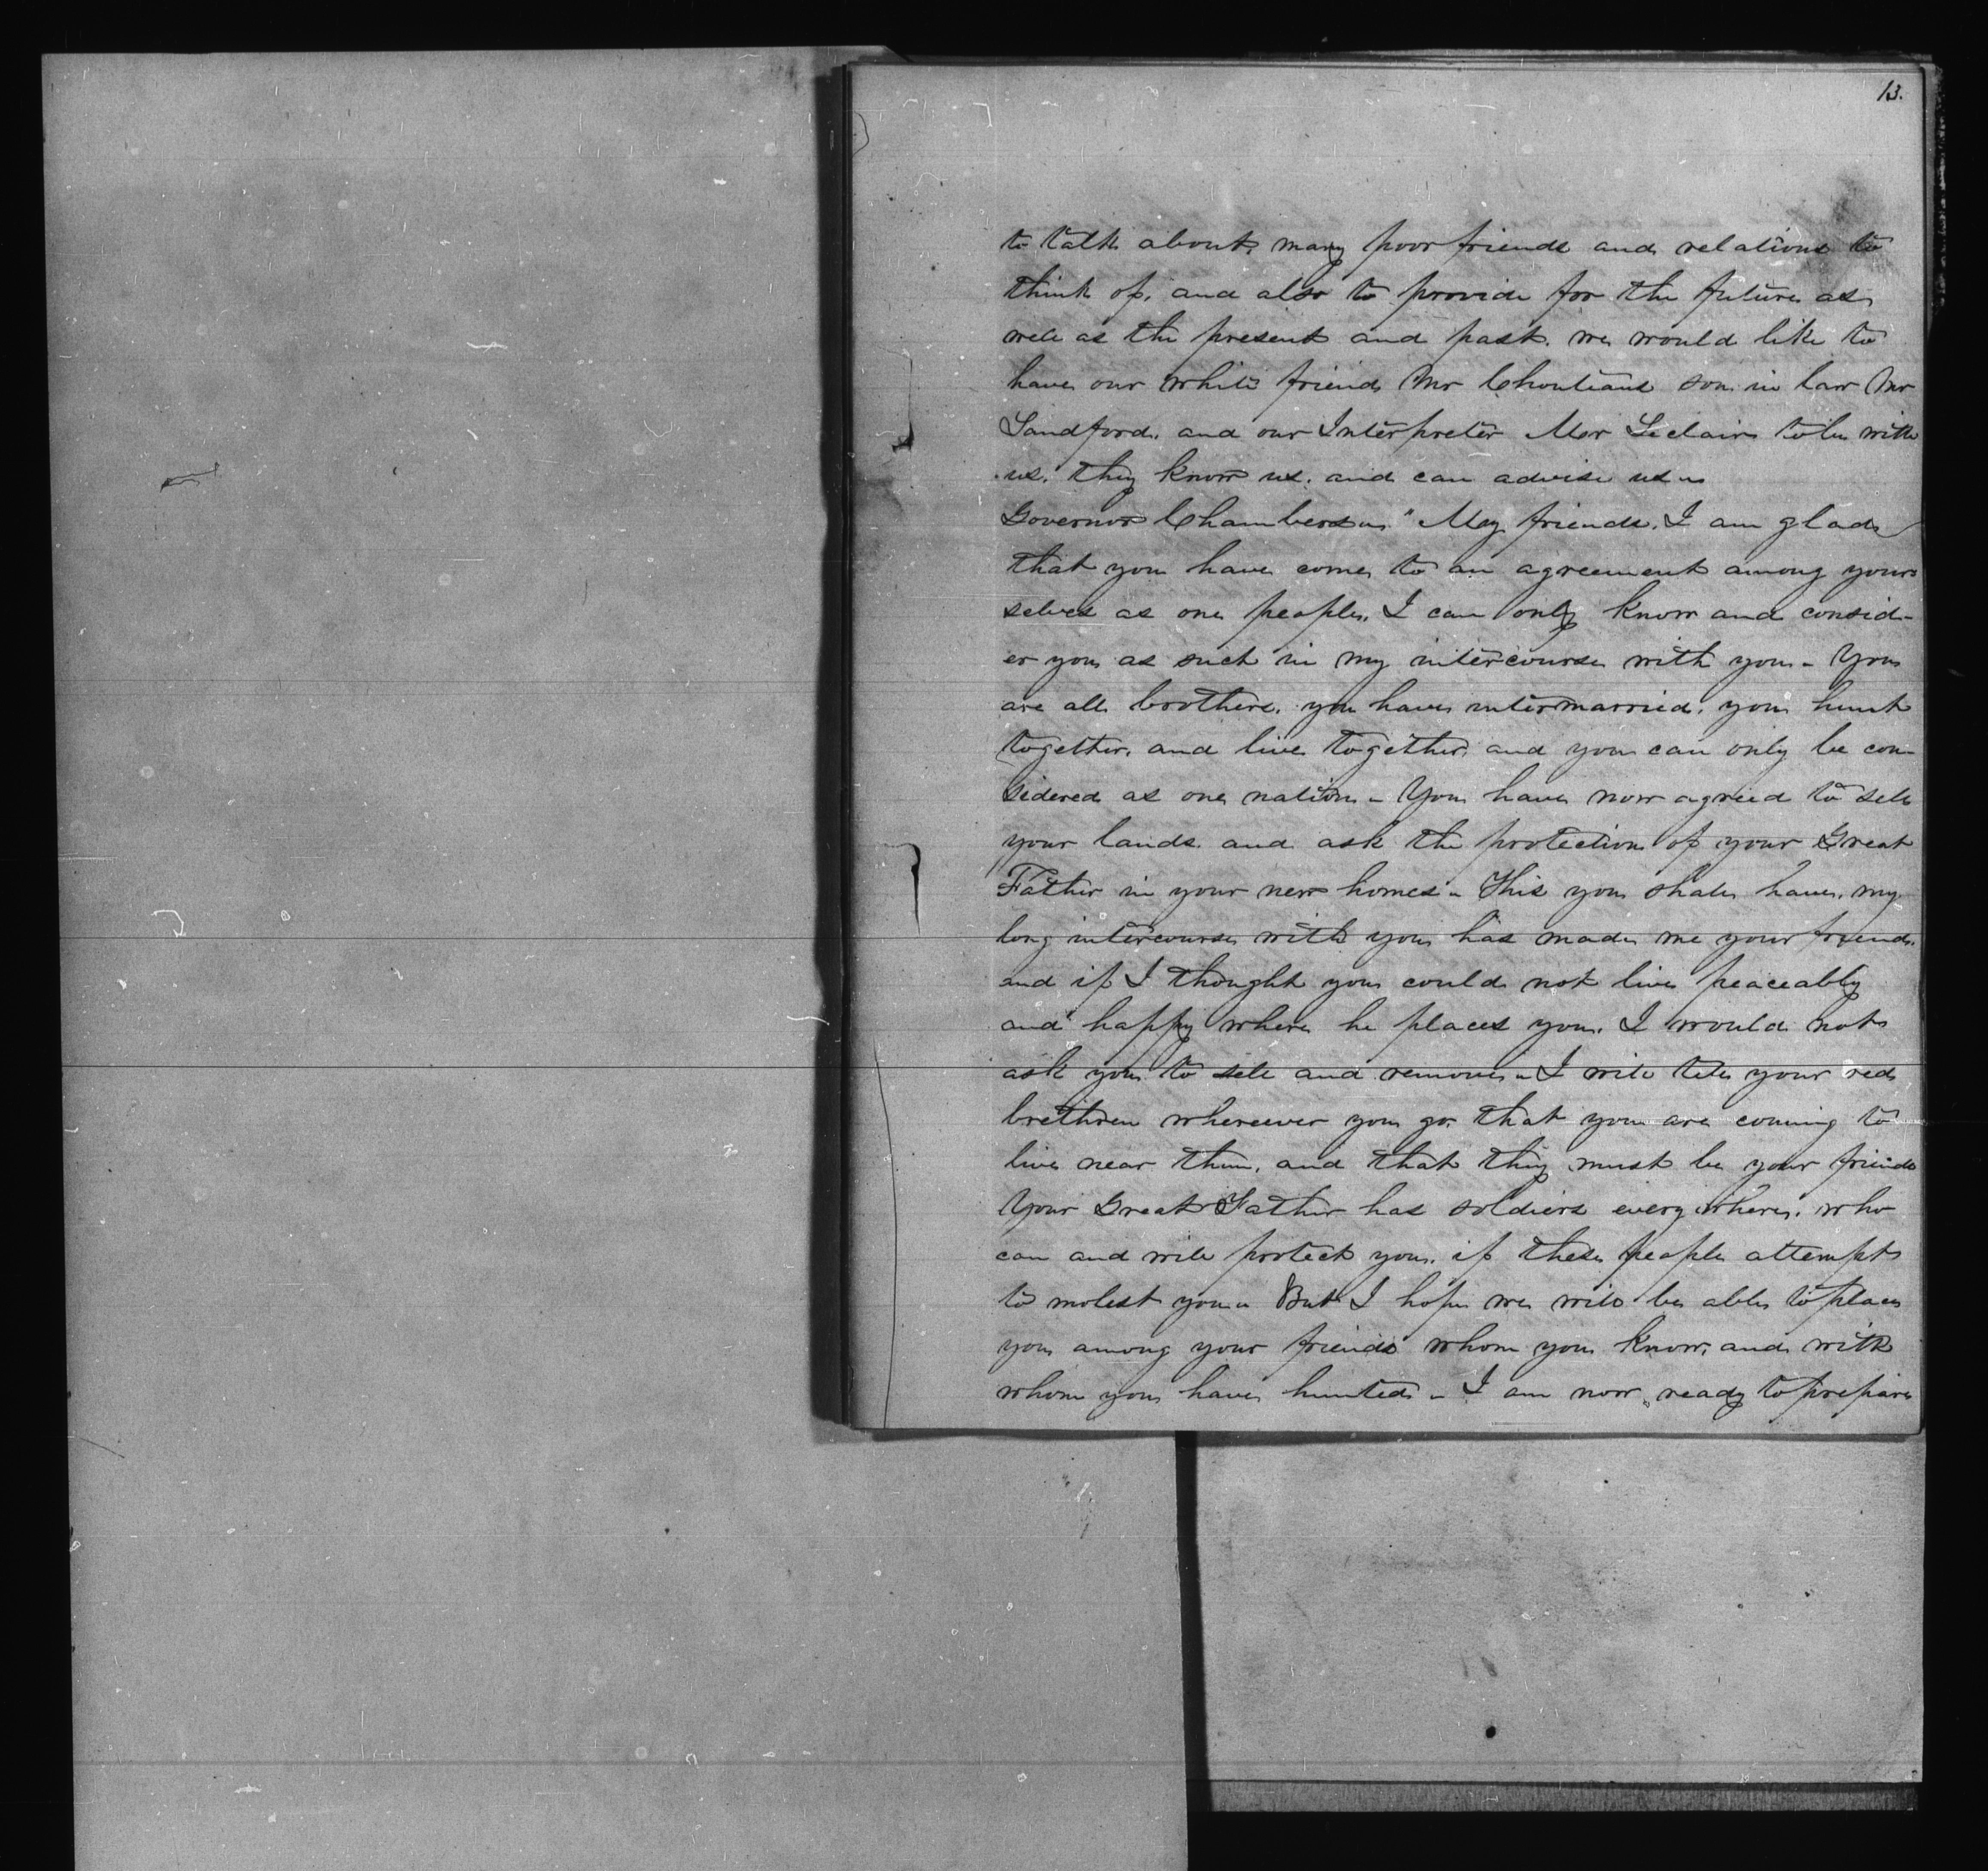 13.
to talk about, many poor friends and relations to
think of, and also to provide for the future as
well as the present and past. we would like to
have our white friend Mr Chouteaus son in law Mr
Sandford, and our Interpreter Mor Leclair to be with
us. they know us. and can advise us "
Governor Chambers " "My friends. I am glad
that you have come to an agreement among your
selves as one people. I can only know and consid-
er you as such in my intercourse with you - You
are all brothers. you have intermarried. you hunt
together. and live together and you can only be con-
sidered as one nation - You have now agreed to sell
your lands. and ask the protection of your Great
Father in your new homes - This you shall have. my
long intercourse with you has made me your friend.
and if I thought you could not live peaceably
and happy where he places you. I would not
ask you to sell and remove - I will tell your red
brethren wherever you go. that you are coming to
live near them, and that they must be your friends
Your Great Father has soldiers every where. who
can and will protect you. if these people attempt
to molest you - But I hope we will be able to place
you among your friends whom you know, and with
whom you have hunted - I am now ready to prepare